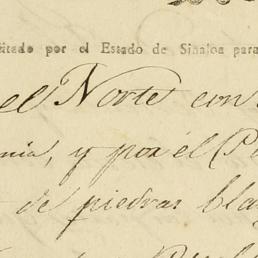 citado por el Estado de Sinaloa para
el Norte con
nia, y por él P
de piedras bla